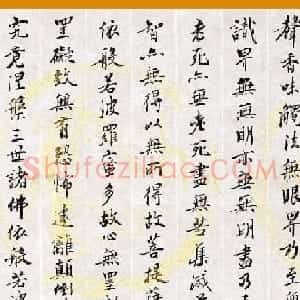 聲香味觸法無眼界乃至
識界無無明亦無無明盡乃
老死亦無老死盡無苦集滅
智亦無得以無所得故菩提
依般若波羅蜜多故心無罣
罣礙故無有恐怖遠離顛倒
究竟涅槃三世諸佛依般若波